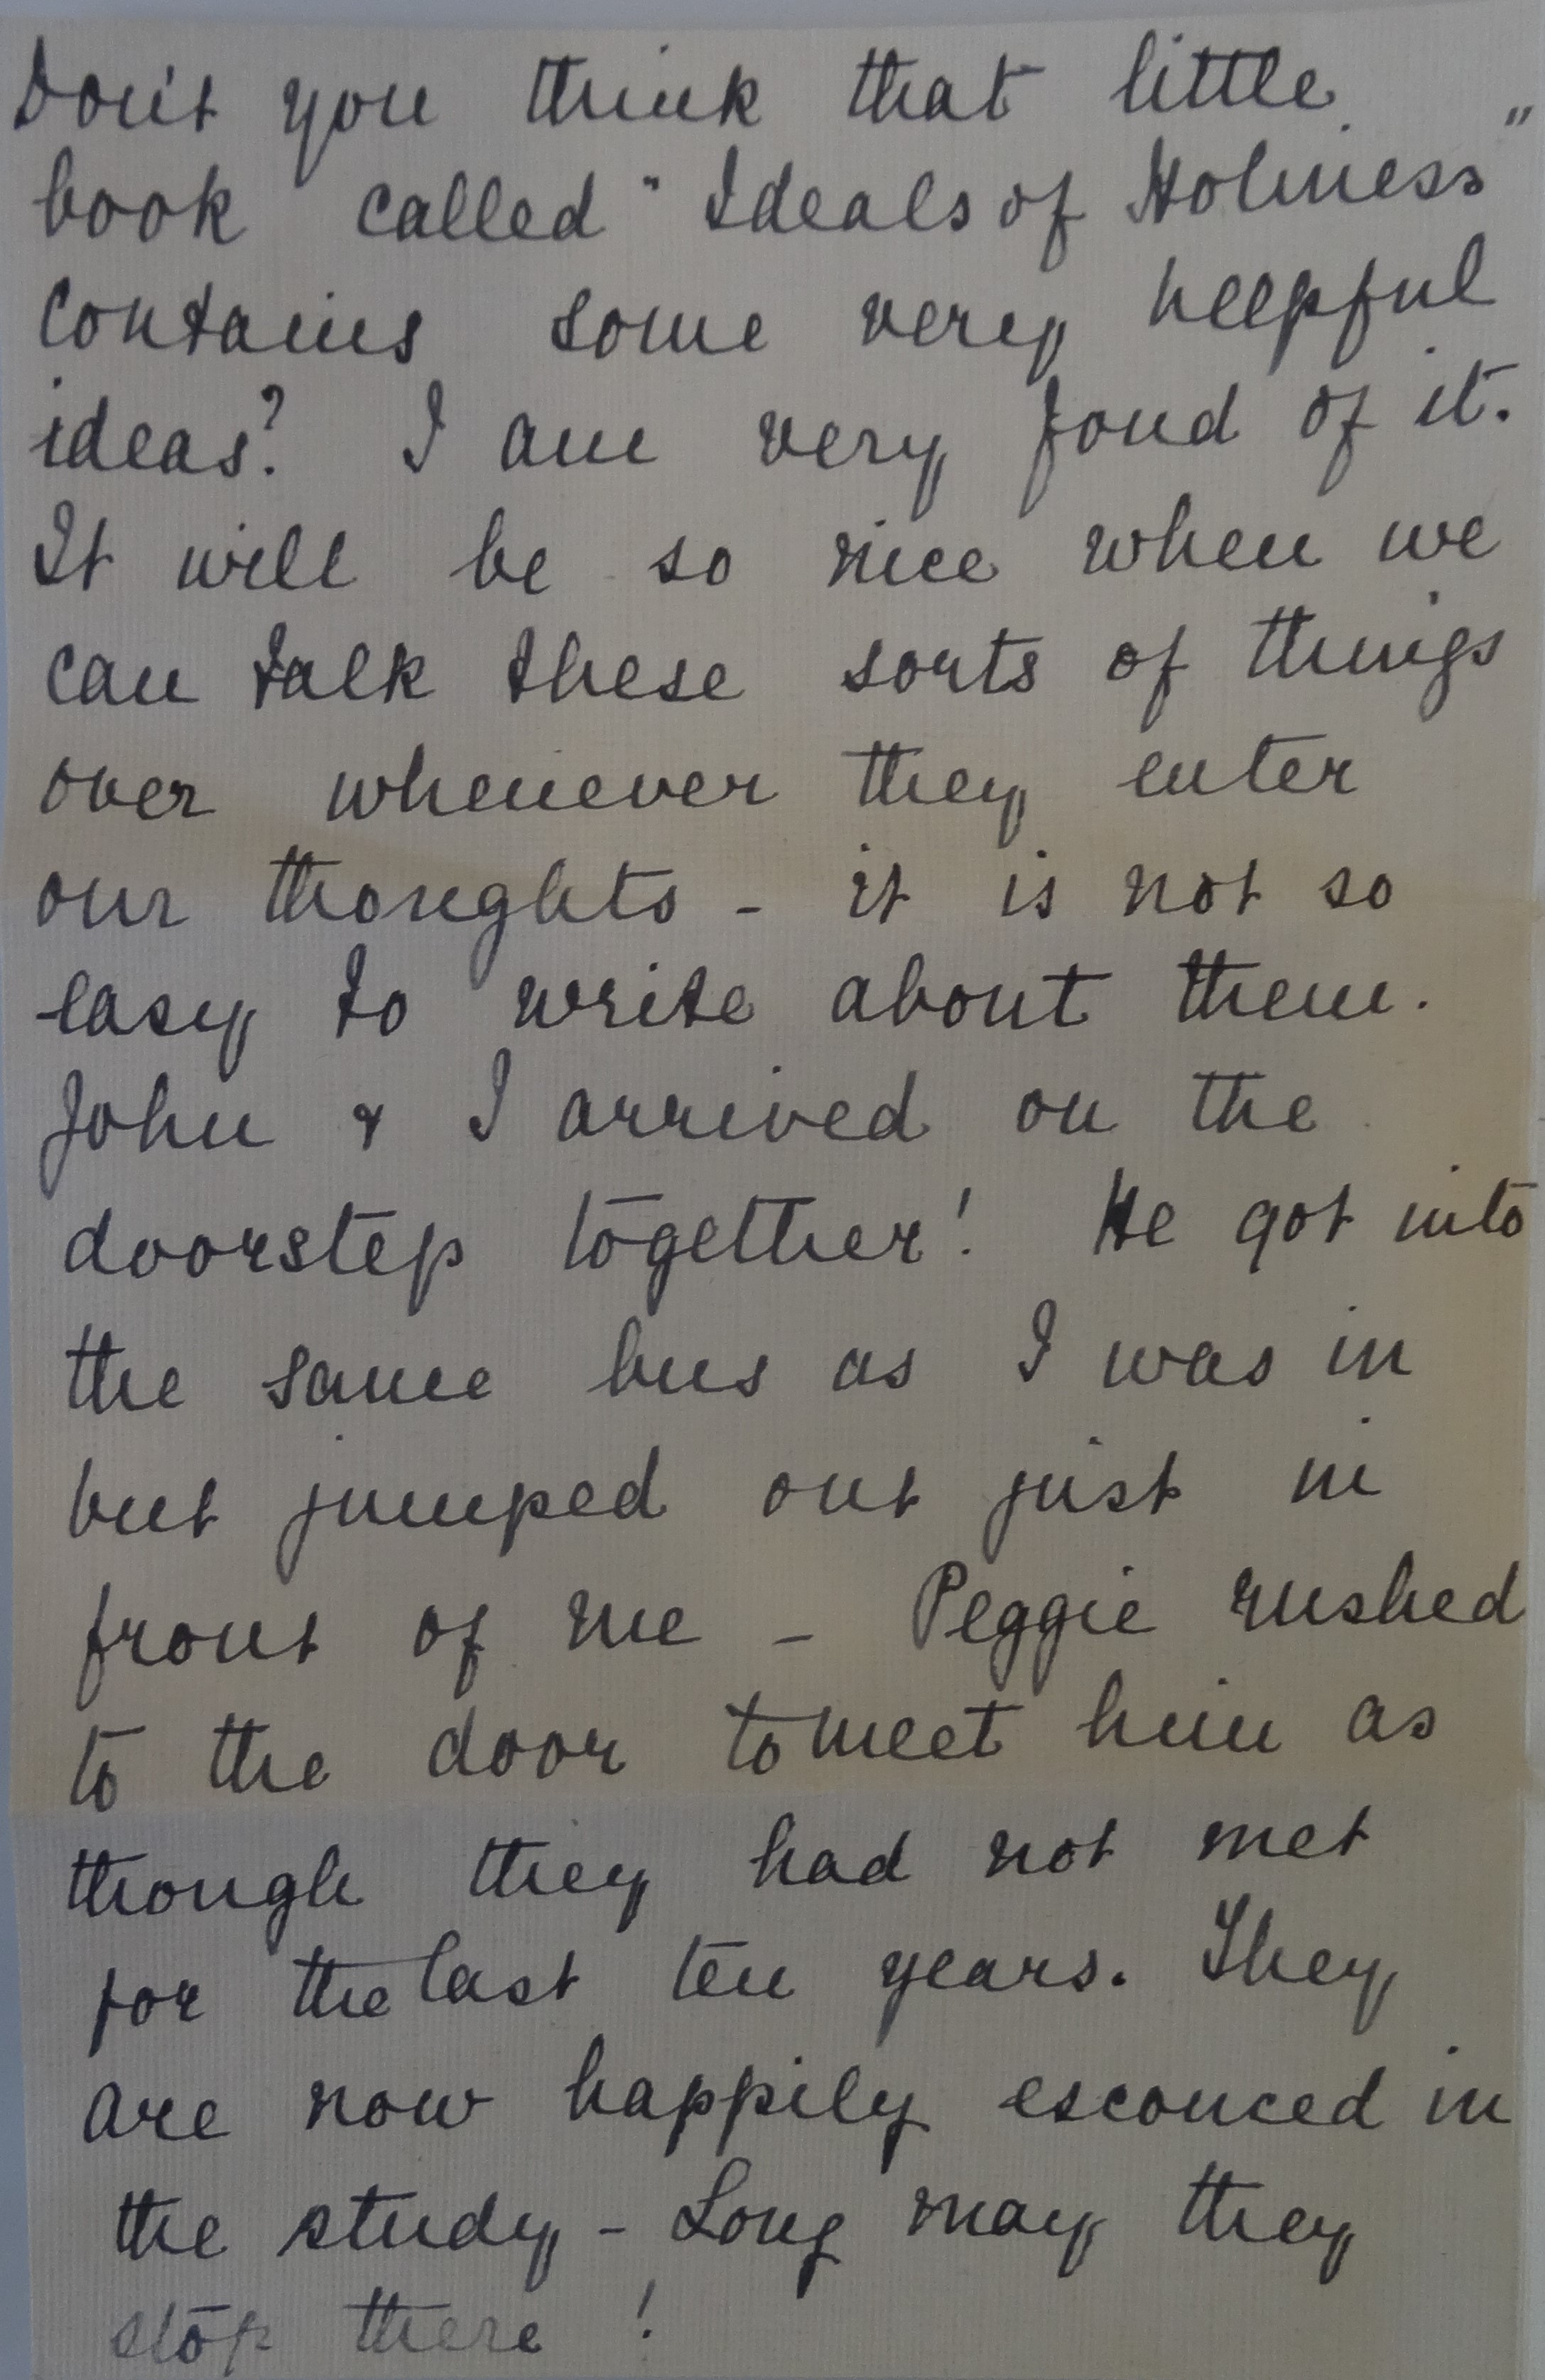 Don't you think that little
book called "Ideals of Holiness"
contains some very helpful
ideas? I am very fond of it.
It will be so nice when we
can talk these sorts of things
over whenever they enter
our thoughts - it is not so
easy to write about them.
John & I arrived on the
doorstep together! He got into
the same bus as I was in
but jumped out just in
front of me - Peggie rushed
to the door to meet him as
though they had not met
for the last ten years. They
are now happily esconced in
the study - Long may they
stop there!